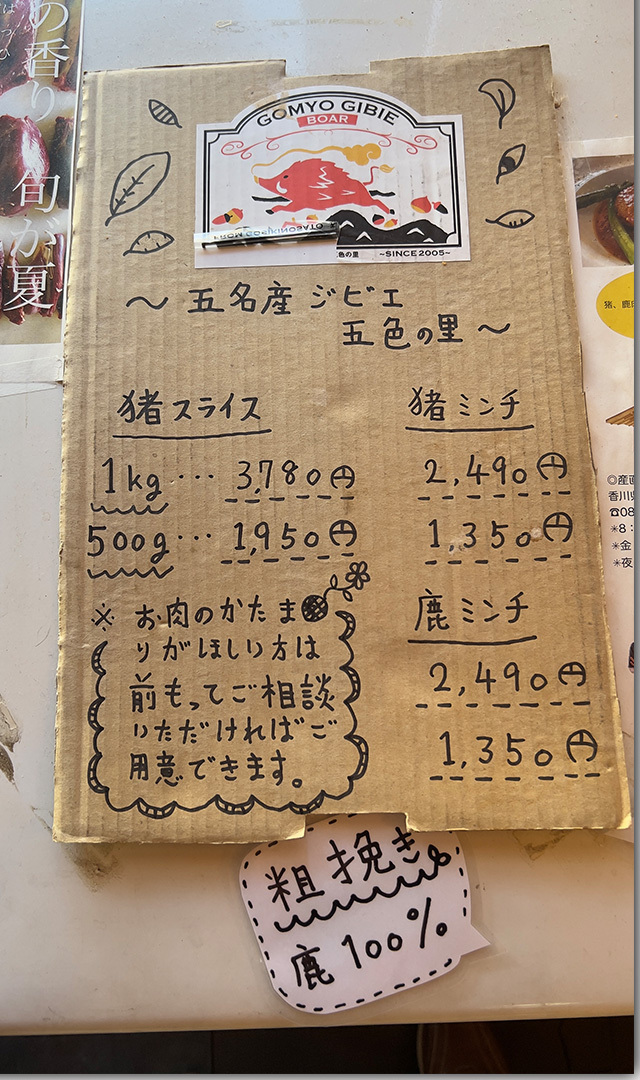 の香り
旬が夏
GOMYO GIBIER
BOAR
色の里
~SINCE2005~
～ 五名産 ジビエ
五色の里 ～
猪スライス
1kg ・・・ 3,780円
500g ・・・ 1,950円
猪ミンチ
2,490円
1,350円
鹿ミンチ
2,490円
1,350円
※ お肉のかたま
りがほしい方は
前もってご相談
いただければご
用意できます。
粗挽き
鹿100%
猪、鹿
◎産直
香川県
☎08
＊8：
＊金
＊夜